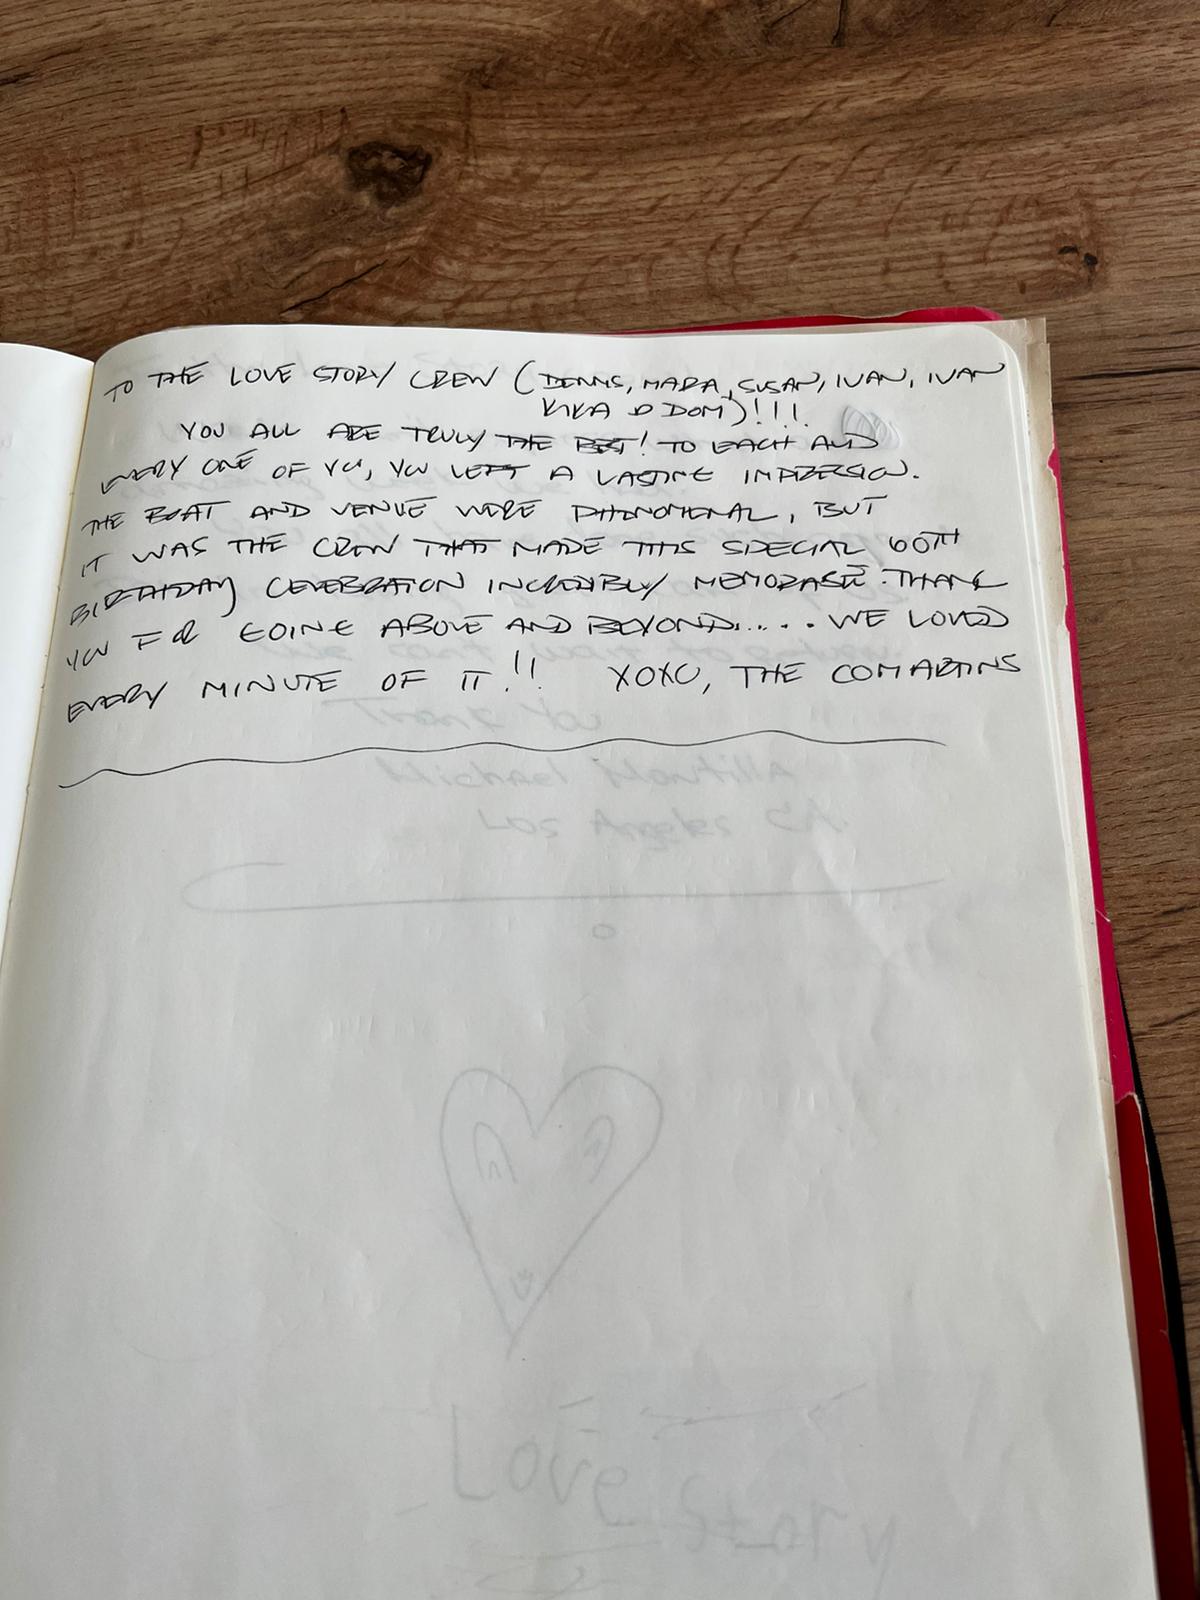 TO THE LOVE STORY CREW (DENNIS, MARA, SUSAN, IVAN, IVAN
KIKA & DOM)!!!
YOU ALL ARE TRULY THE BEST! TO EACH AND
EVERY ONE OF YOU, YOU LEFT A LASTING IMPRESSION.
THE BOAT AND VENUE WERE PHENOMENAL, BUT
IT WAS THE CREW THAT MADE THIS SPECIAL 60TH
BIRTHDAY CELEBRATION INCREDIBLY MEMORABLE. THANK
YOU FOR GOING ABOVE AND BEYOND..... WE LOVED
EVERY MINUTE OF IT!! XOXO, THE COMARTINS
Thank You
Michael Montilla
Los Angeles CA.
Love
Story